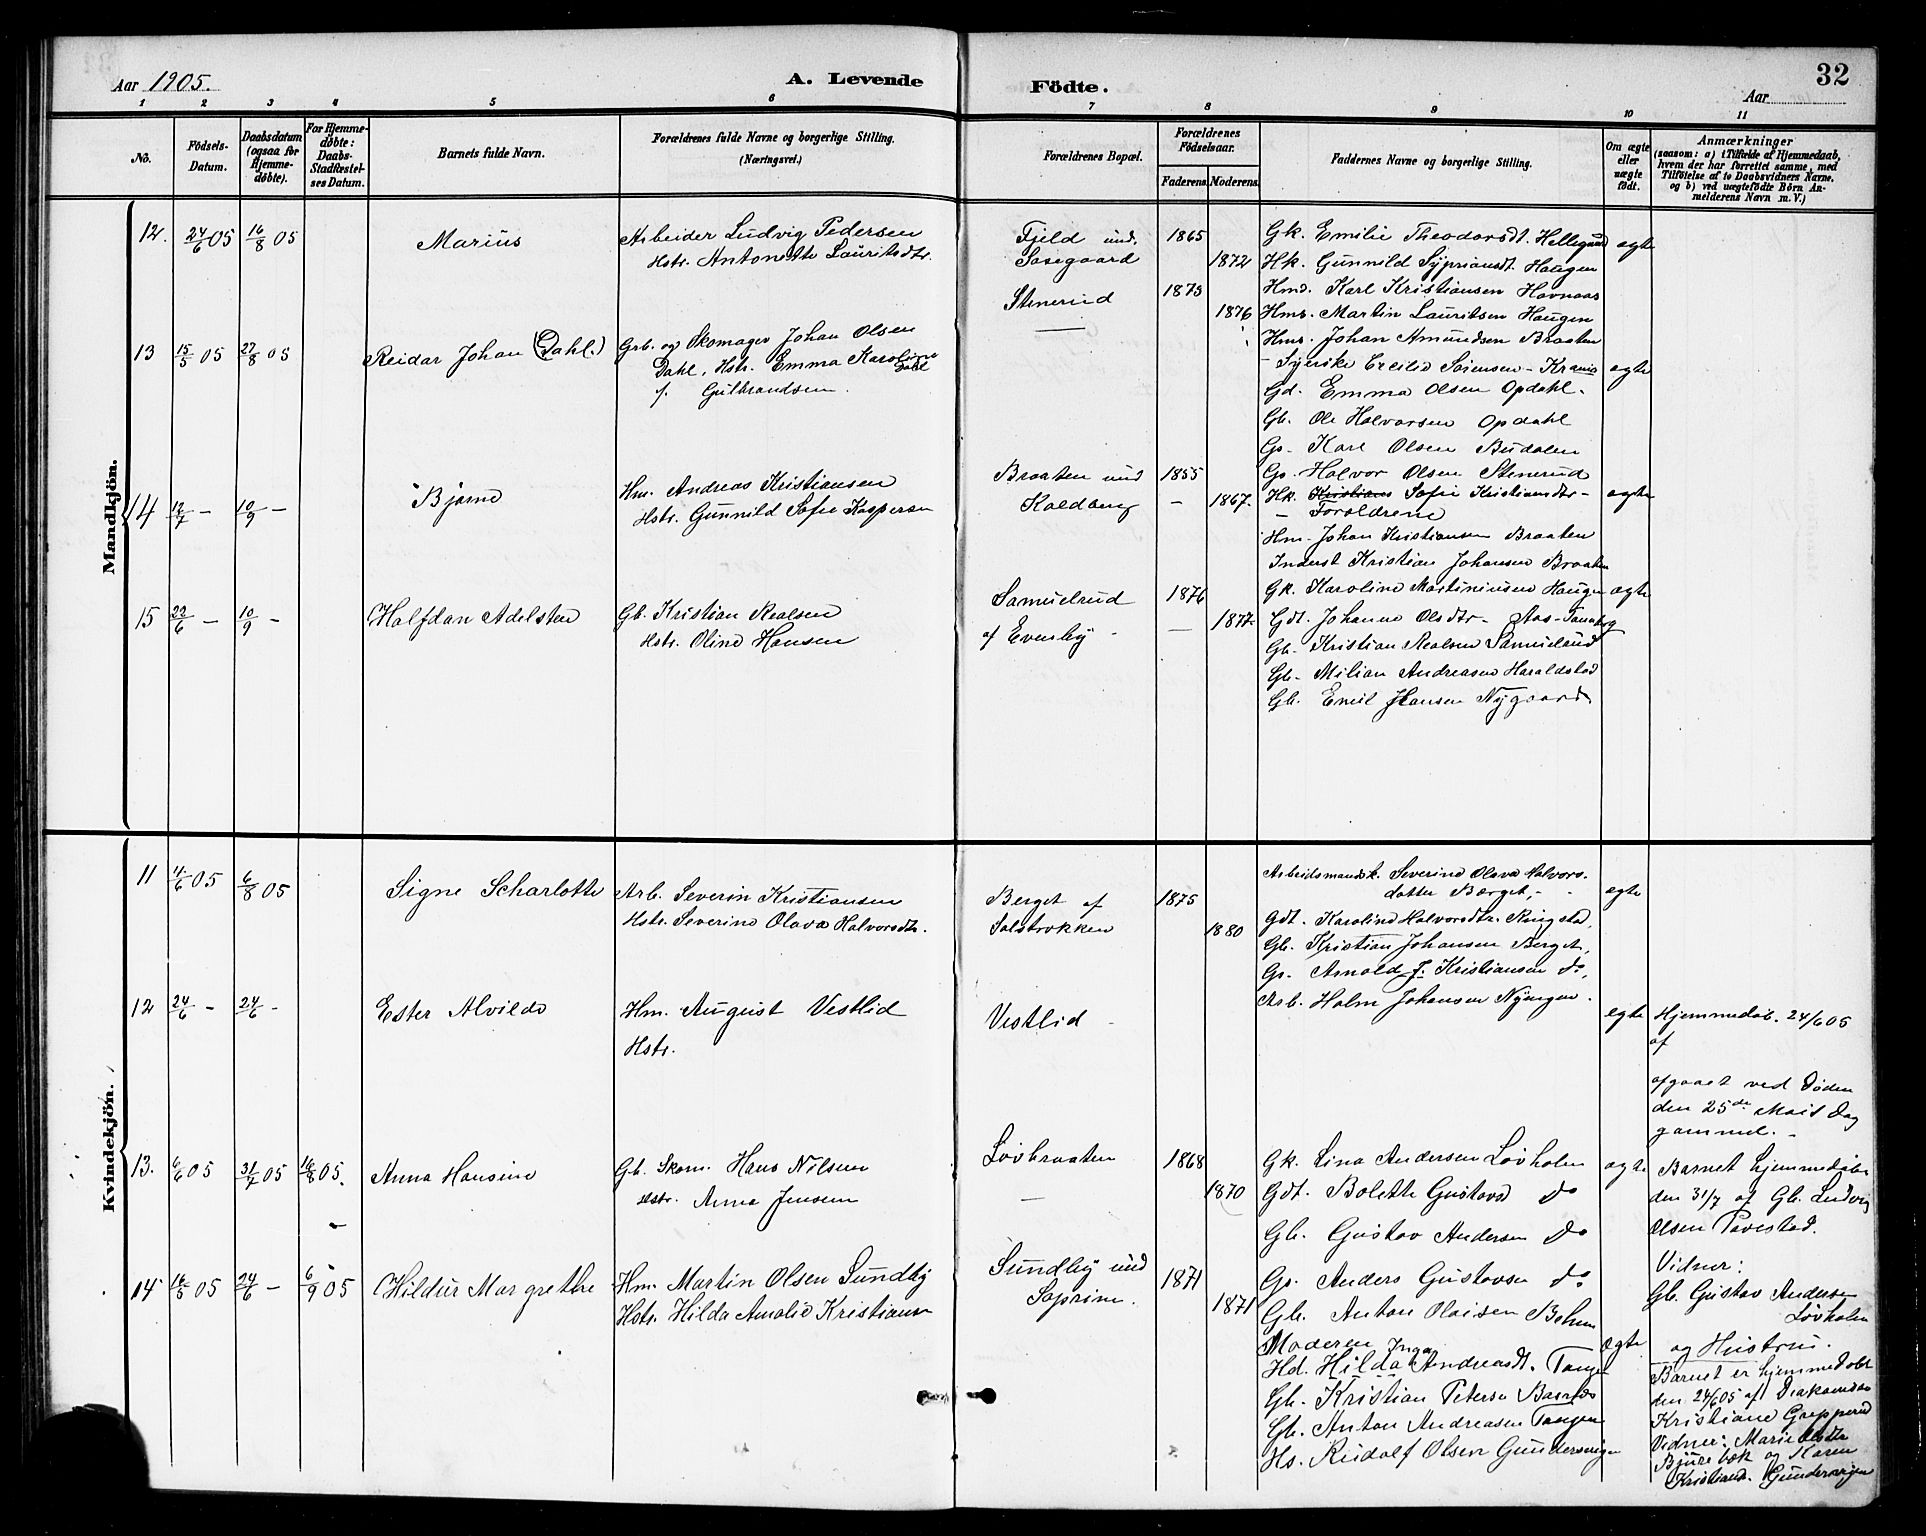 32
Aar 1905.
A. Levende Födte.
Aar
1 2 3 4 5 6 7 8 9 10 11
No.
Födsels-Datum.
Daabsdatum (ogsaa for Hjemme-døbte).
For Hjemme-døbte: Daabs-Stadfæstel-ses Datum.
Barnets fulde Navn.
Forældrenes fulde Navne og borgerlige Stilling.
(Næringsvei.)
Forældrenes Bopæl.
Forældrenes Födselsaar.
Faderens.
Moderens.
Faddernes Navne og borgerlige Stilling.
Om ægte eller uægte født.
Anmærkninger
(saasom: a) i Tilfælde af Hjemmedaab,
hvem der har forrettet samme, med
Tilföielse af to Daabsvidners Navne.
og b) ved uægtefödte Börn An-
melderens Navn m. V.)
Mandkjön.
12. 24/6 05 16/8 05
Marius
Arbeider Ludvig Pedersen
Hstr. Antonette Lauritsdtr.
Fjeld und.
Sosegaard
1865
1872
Gk. Emilie Theodorsdt. Hellegaard
Hk. Gunnild Syprionsdt. Haugen
Hmd. Karl Kristiansen Hovnaas
Hms. Martin Lauritsen Haugen
Hms. Johan Amundsen Braaten
ægte
13 15/5 05 27/8 05
Reidar Johan (Dahl.)
Grb. og Skomager Johan Olsen
Dahl, Hstr. Emma Karoline Dahl
f. Gulbrandsen.
Stenerud
1873
1876
- Syerske Cecilie Sørensen -
Gd. Emma Olsen Opdahl.
Gb. Ole Halvorsen Opdahl
Gs. Karl Olsen Budalen
Gs. Halvor Olsen Stenerud
ægte
14 12/7 - 10/9 -
Bjarne
Hm. Andreas Kristiansen
Hstr. Gunnild Sofie Kaspersen
Braaten und
Koldberg
1855
- 1867.
Hk. Kristians Sofie Kristiansdtr -
- Forældrene
Hm. Johan Kristiansen Braaten
Inderst Kristian Johansen Braaten
ægte
15 22/6 - 10/9 -
Halfdan Adelsten
Gb. Kristian Realsen
Hstr. Oline Hansen
Samuelrud
af Evensby -
1876
- 1877
Gk. Karoline Martiniusen Haugen
Gdt. Johanne Olsdtr - Aas-
Gb. Kristian Realsen Samuelrud
Gb. Milian Andreasen Haraldstad
Gb. Emil Hansen Nygaard
ægte
Kvindekjön.
11 4/6 05 6/8 05
Signe Scharlotte
Arb. Severin Kristiansen
Hstr. Severine Olava Halvorsdtr.
Berget af
Solstrokken
1875
1880
Arbeidsmandsk. Severine Olava Halvors-
datter Berget,
Gdt. Karoline Halvorsdtr. Ringstad,
Gb. Kristian Johansen Berget,
Gs. Arnold F. Kristiansen do,
Arb. Holm Johansen Nyengen.
ægte
12 24/6 - 24/6 -
Ester Alvilde
Hm. August Vestlid
Hstr.
Vestlid -
egte
Hjemmedøb. 24/6 05
af
afgaaet ved Døden
den 25de Dag
gammel. -
13. 6/6 05 31/7 05 16/8 05.
Anna Hansine
Gb. Skom. Hans Nilsen
Hstr. Anna Jensen
Løvbraaten
1868
1870
Gk. Lina Andersen Løvholm
Gdt. Bolette Gustavsd do
Gb. Gustav Andersen do
Gs. Anders Gustavsen do
Gb. Anton Olaisen
ægte
Barnet hjemmedøbt
den 31/7 af Gb. Ludvig
Olsen
Vidner:
Gb. Gustav Andersen
Løvholm
og Hustru.
14 14/5 05 24/6 - 6/9 05
Hildur Margrethe
Hm. Martin Olsen Sundby
Hstr. Hilda Amalie Kristiansen
Sundby und
Soprim.
1871
1871
Moderen
Hd. Hilda Inga Andreasdt. Tangen
Gb. Kristian Petersen
Gb. Anton Andreasen Tangen
Hs. Rudolf Olsen Gunderengen
ægte
Barnet er hjemmedøbt
den 24/6 05 af Diakonisse
Kristiane Grepperud
Vidner: Marie Olsdtr
Bjurebæk og Karen
Kristiansd. Gunderengen